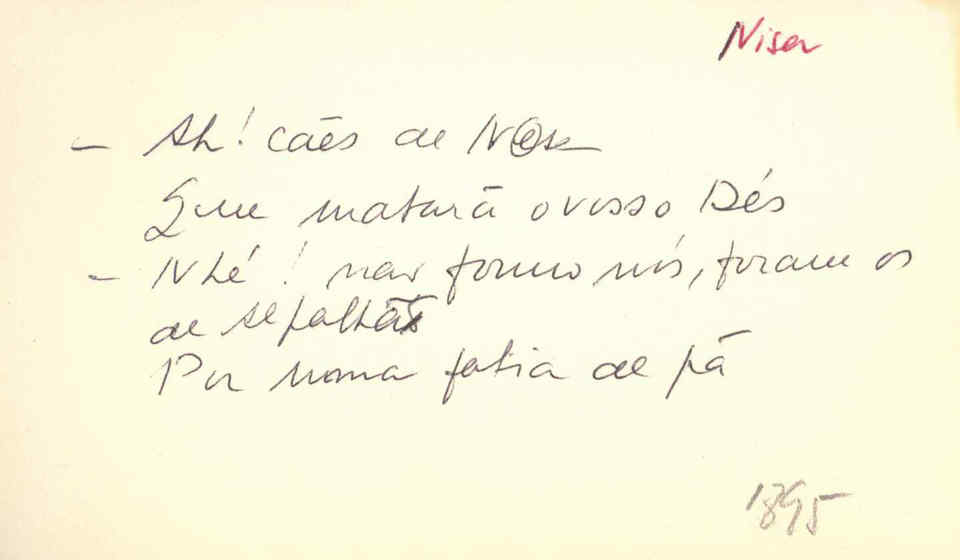 Nisa
- Ah! cães de Nisa
Que matarã o vosso Dés
- Nhé! nav fomo nós, foram os
de Alpalhã
Por noma fatia de pã
1895